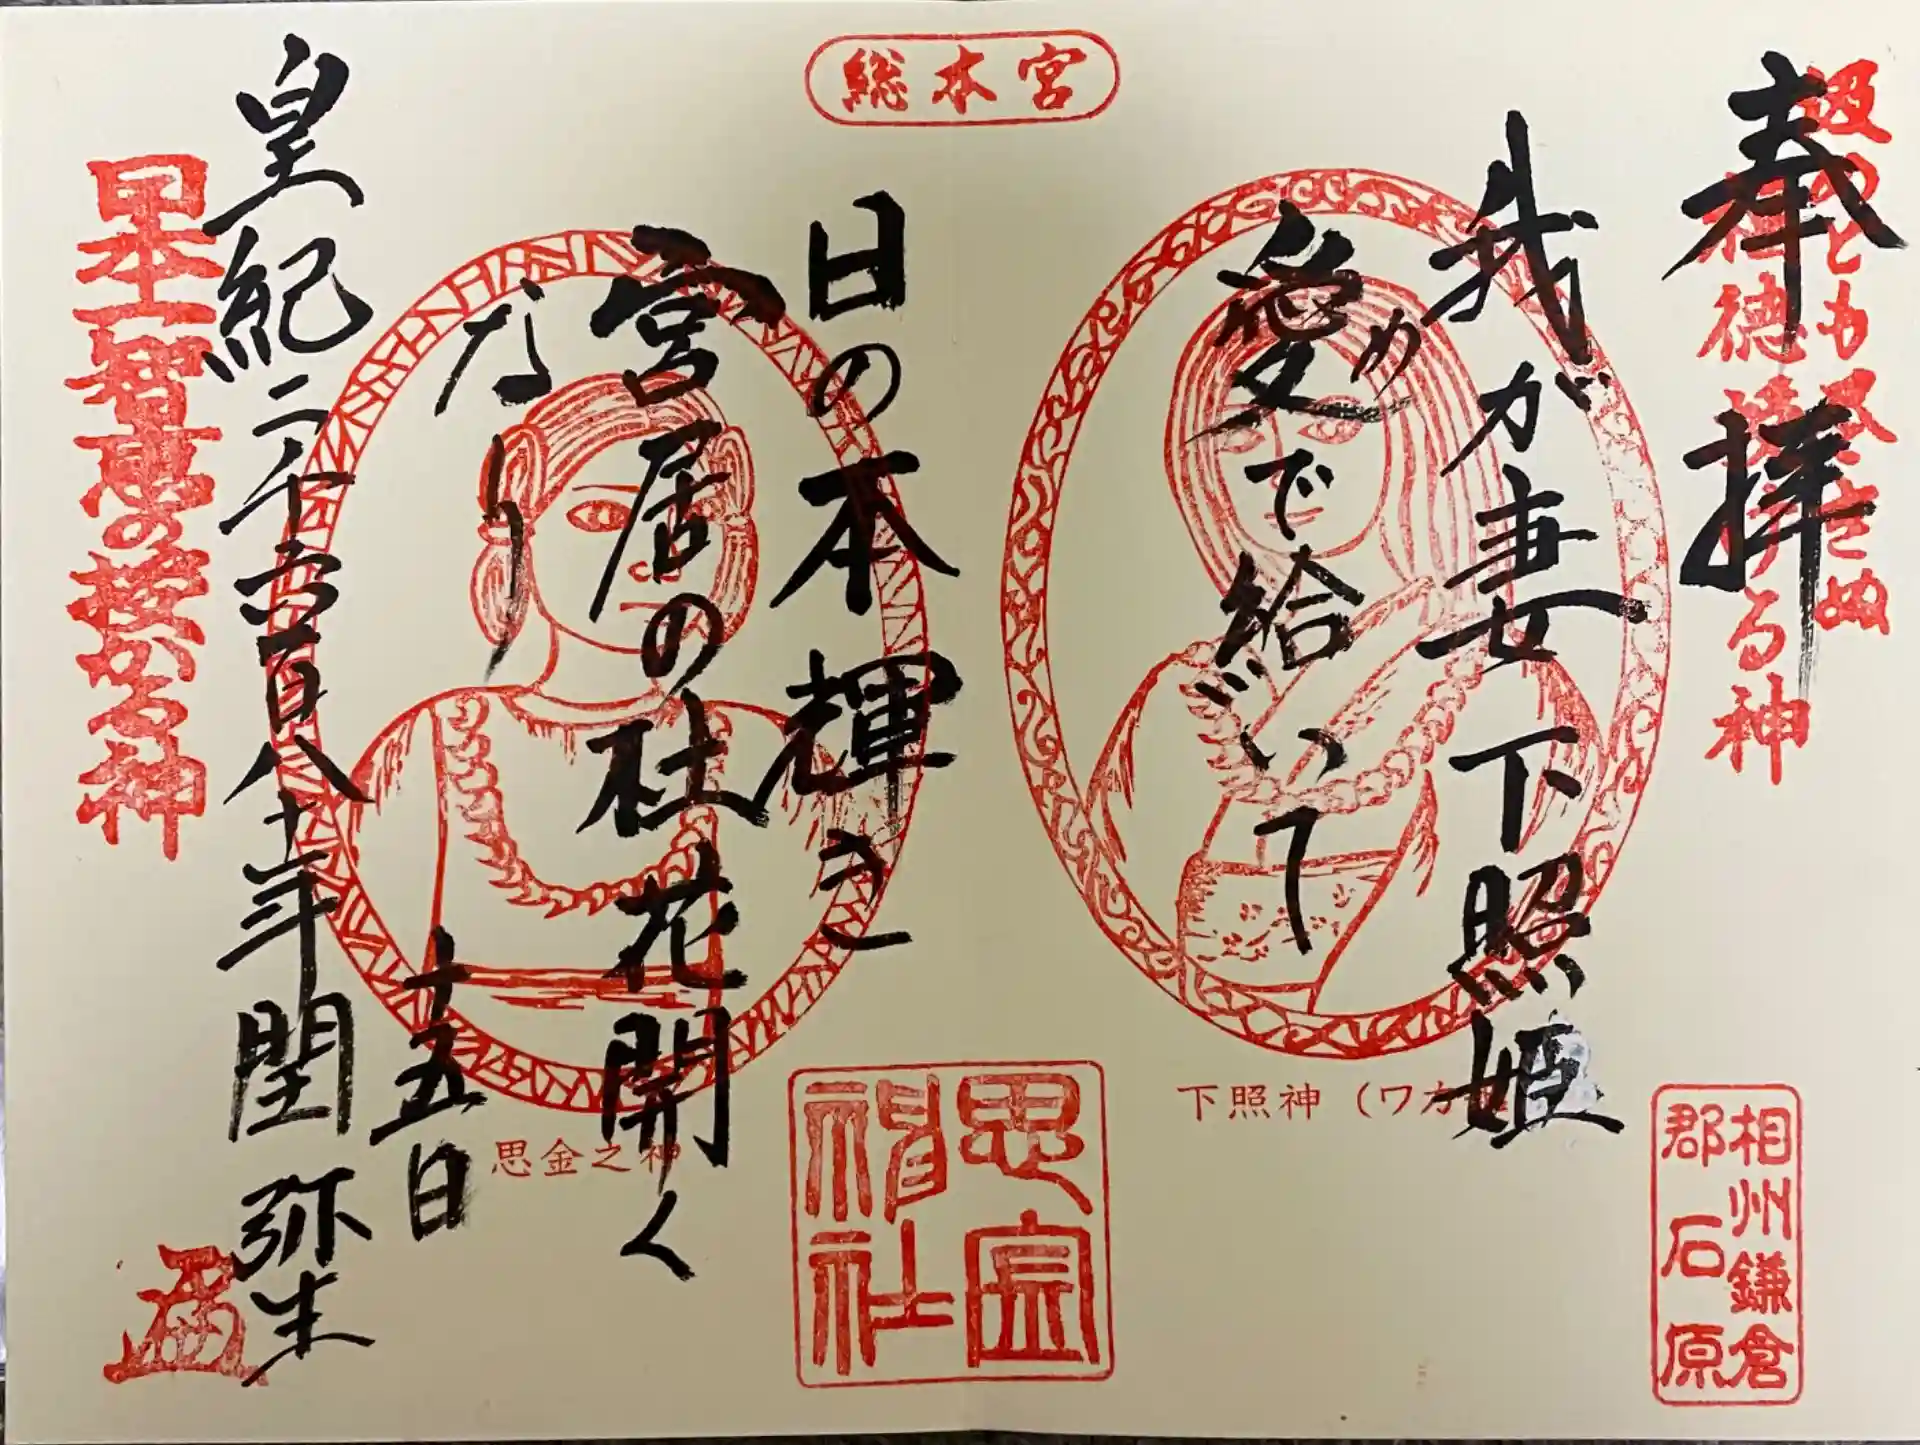 総本宮
奉拝
汲めども尽きぬ
神徳授ける神
我が妻下照姫
愛め で給いて
日の本輝き
宮居の社花開く
なり
皇紀二千六百八十年閏弥生
十五日
日本一智恵の授かる神
下照神（ワカ
思金之神
思金神社
相州鎌倉
郡石原